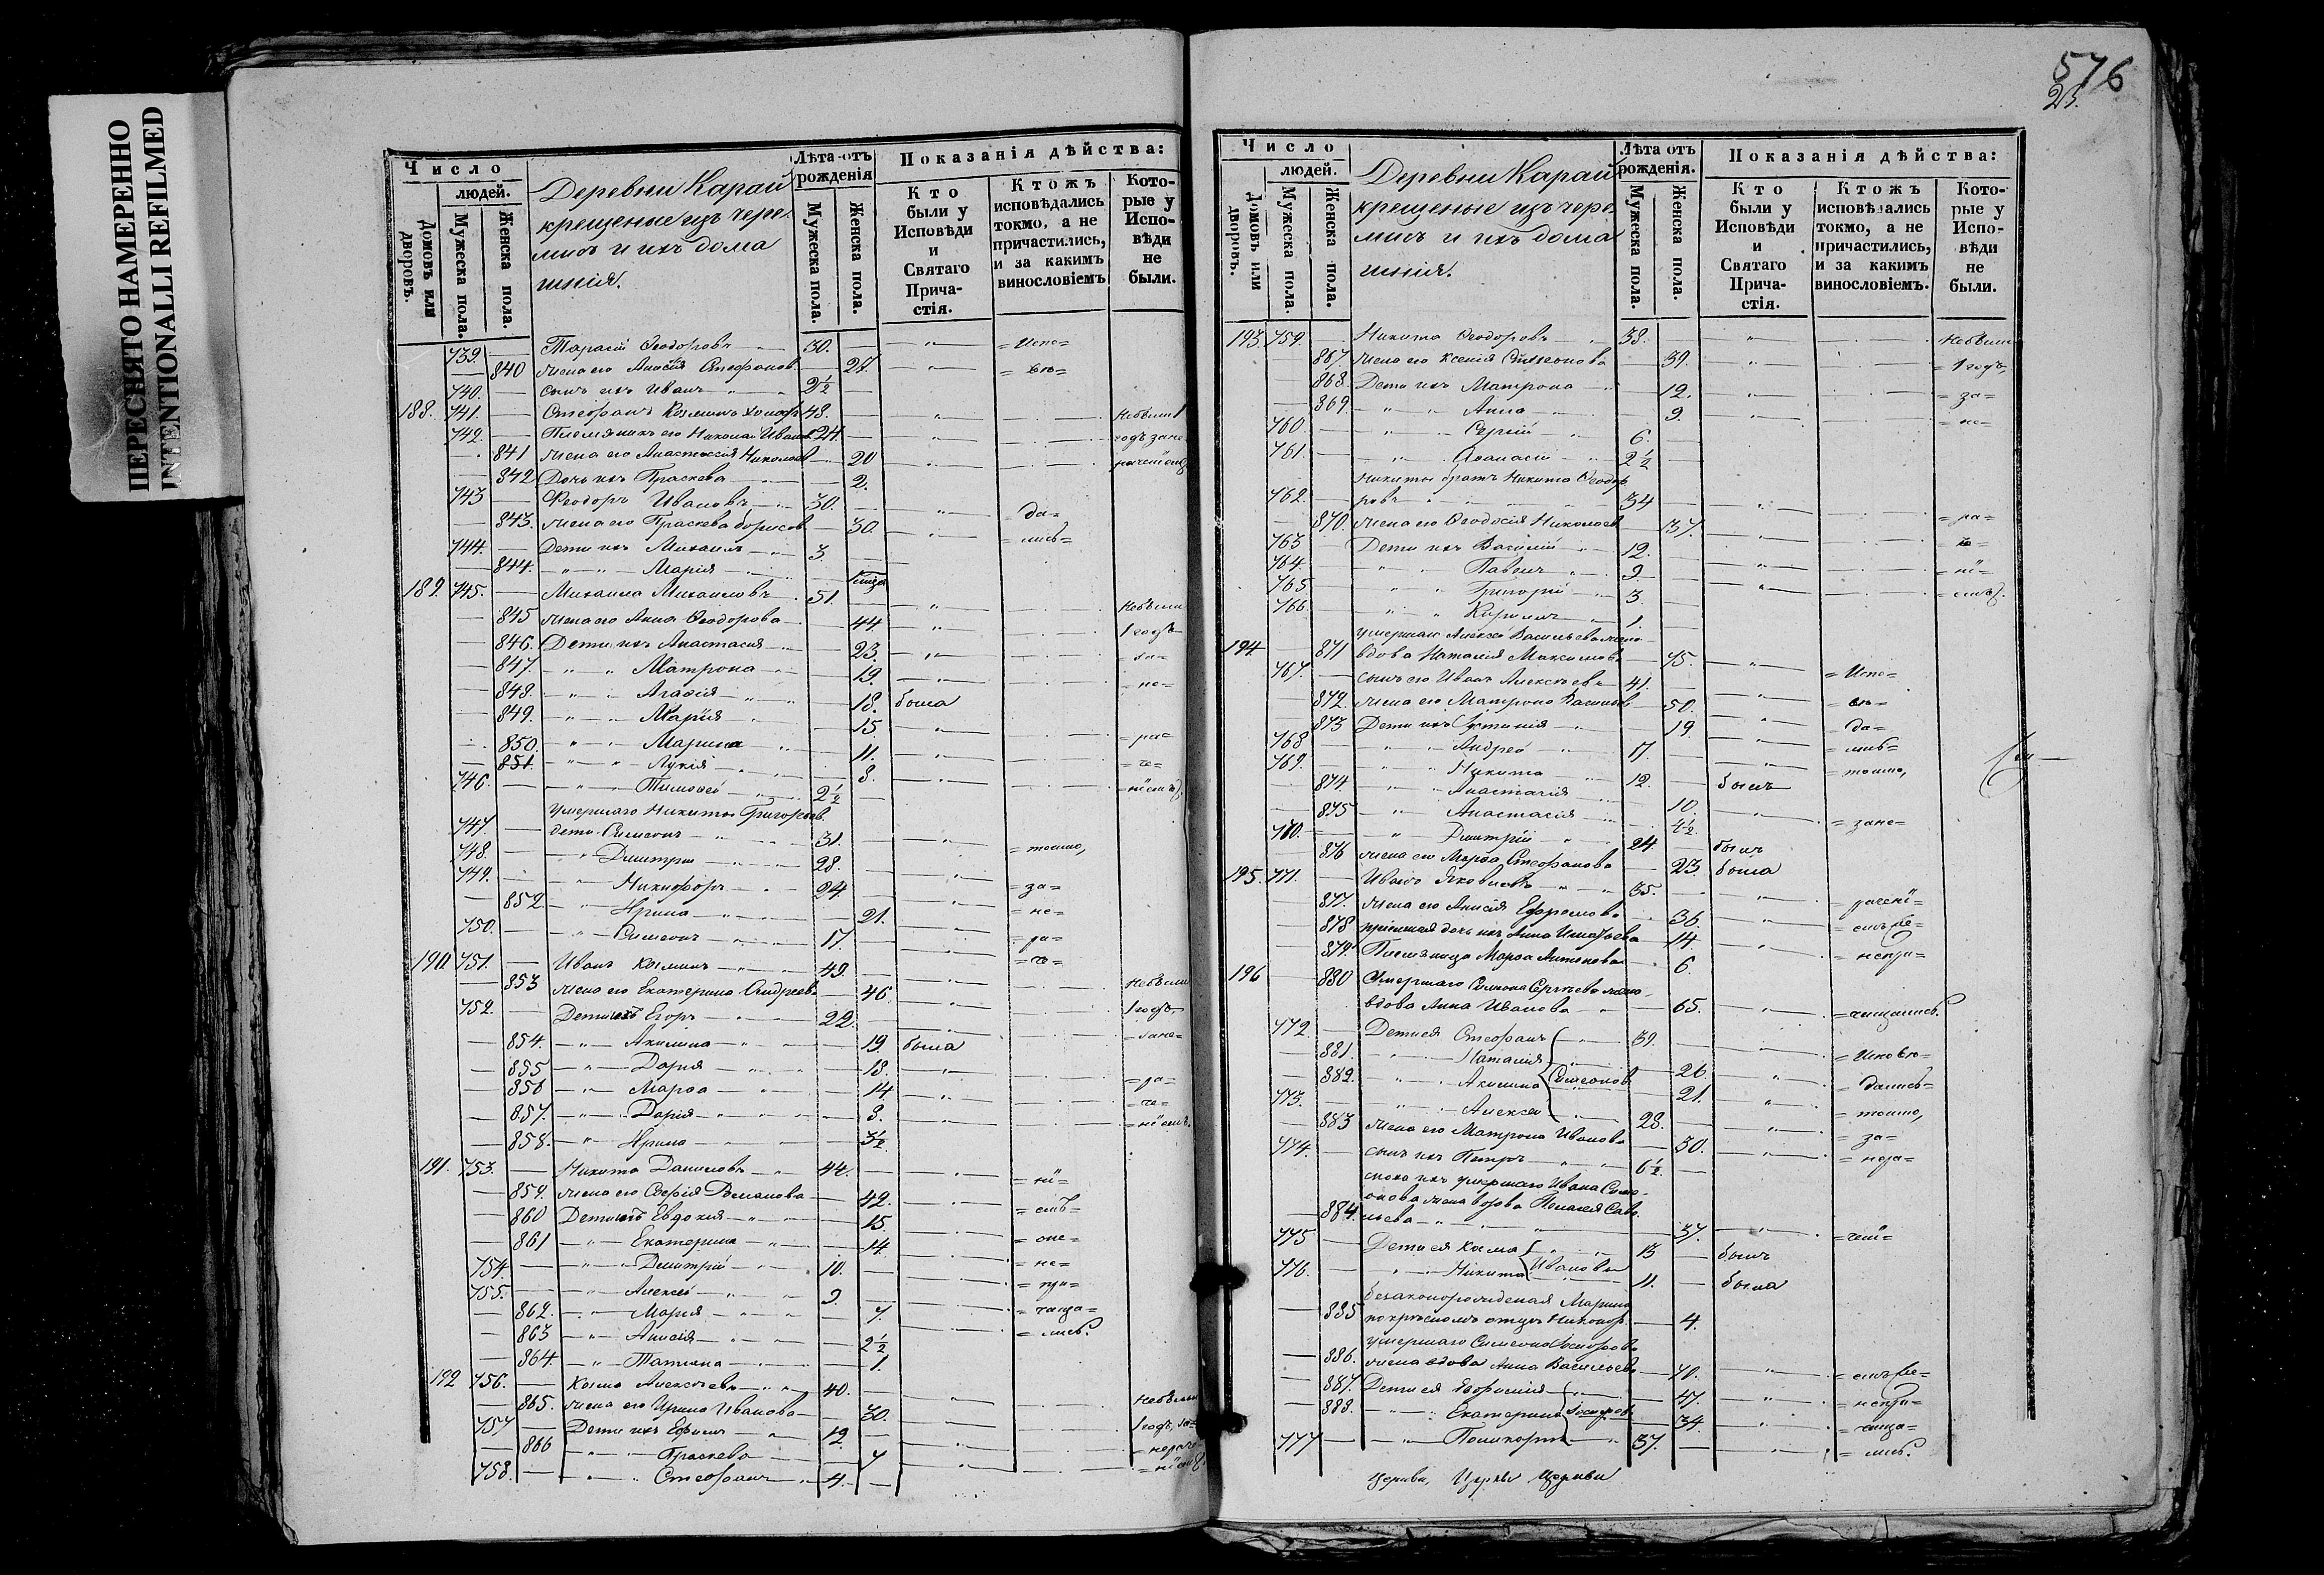 ПЕРЕСНЯТО НАМЕРЕННО
INTENTIONALLI REFILMED
Число
людей.
Домовъ или дворовъ.
Мужеска пола.
Женска пола.
Деревни Карай
крещеные изъ чере-
мисъ и ихъ дома
шнія.
Лѣта отъ рожденія
Мужеска пола.
Женска пола.
Показанія дѣйства:
Кто были у Исповѣди и Святаго Прича-стія.
Ктожъ исповѣдались токмо, а не причастились, и за какимъ винословіемъ
Кото-рые у Испо-вѣди не были.
739. Тарасій Ѳеодоровъ 30. =Испо=
840 жена его Анисія Стефанов. 27. =вѣ=
740. сынъ ихъ Иванъ 2½
188. 741. Стефанъ Козминъ 48. Небыли 1
742. Племянникъ его Николай Иванов. 24. годъ зане
841 жена его Анастасія Николаев 20
842 Дочь ихъ Праскева 2.
743 Ѳеодоръ Ивановъ 30. =да=
843. жена его Праскева Борисов. 30. =лись=
744. Дети ихъ Михаилъ 3.
844. Марія
189. 745. Михаила Михаиловъ 51. Небыли
845 жена его Анна Ѳеодорова 44. 1 годъ
846. Дети ихъ Анастасія 23. =за=
847. Матрона 19. =не=
848. Агафія 18. была
849. Марія 15. =ра=
850. Марина 11. =че=
851. Лукія 8. =ніемъ.
746. Тимофей 2½
умершаго Никиты Григорьев.
747. дети Симеонъ 31. =токмо,
748. Димитрій 28.
749. Никифоръ 24. =за=
852. Ирина 21. =не=
750. Симеонъ 17. =ра=
190 751. Иванъ Козминъ 49. =че=
853 жена его Екатерина Андреева 46. Небыли
752. Дети ихъ Егоръ 22. 1 годъ
854. Акилина 19. была =зане=
855 Дарія 18.
856 Марѳа 14 =ра=
857. Дарія 8. =че=
858. Ирина 3½ =ніемъ.
191. 753. Никита Даниловъ 44. =ні=
859. жена его Софія Романова 42. =емъ=
860 Дети ихъ Евдокія 15.
861 Екатерина 14. =оне=
754. Димитрій 10. =не=
755. Алексей 9. =при=
862. Марія 7. =чаща=
863 Анисія 2½ =лись.
864. Татіана 1.
192 756. Козма Алексѣевъ 40.
865. жена его Ирина Иванова 30. Небыли
757 Дети ихъ Ефимъ 12. 1 годъ за=
866 Праскева 7 =нераче=
758. Стефанъ 4. =ніемъ.
576
23.
Число
людей.
Домовъ или дворовъ.
Мужеска пола.
Женска пола.
Деревни Карай
крещеные изъ чере-
мисъ и ихъ дома
шнія.
Лѣта отъ рожденія.
Мужеска пола.
Женска пола.
Показанія дѣйства:
Кто были у Исповѣди и Святаго Прича-стія.
Ктожъ исповѣдались токмо, а не причастились, и за какимъ винословіемъ.
Кото-рые у Испо-вѣди не были.
193. 759. Никита Ѳеодоровъ 38. Небыли
867. жена его Ксенія Симеонова 39. =1 годъ,
868. Дети ихъ Матрона 12. =за=
869. Анна 9. =не=
760. Сергій 6.
761. Аѳанасій 2½
Никиты братъ Никита Ѳеодор
762. ровъ 34 =ра=
870. жена его Ѳеодосія Николаев 37. =че=
763 Дети ихъ Василій 12. =ні=
764. Павелъ 9 =емъ.
765 Григорій 3.
766. Кириллъ 1.
умершаго Алексѣя Васильева жена
194. 871 вдова Наталія Максимова 75. =Испо=
767. сынъ его Иванъ Алексѣевъ 41. =вѣ=
872. жена его Матрона Васильев 50. =да=
873 Дети ихъ Іустинія 19. =лись=
768 Андрей 17. =токмо,
769. Никита 12. былъ
874. Анастасія 10. =зане=
875 Анастасія 4½.
770. Димитрій 24. былъ
876 жена его Марѳа Стефанова 23. была
195. 771. Иванъ Яковлевъ 35.
877. жена его Анисія Ефремова 36.
878 пріемная дочь ихъ Анна Игнатьева 14.
879. Племянница Марѳа Антонова 6. =непри=
196 880 Умершаго Симеона Сергѣева жена
вдова Анна Иванова 65. =чащались.
772. Дети ея Стефанъ 39. =Исповѣ=
881. Наталія 26. =дались=
882. Акилина Симеонов. 21. =токмо,
773. Алексей 28. =за=
883 жена его Матрона Иванова 30. =нера=
774. сынъ ихъ Петръ 6½.
сноха ихъ умершаго Ивана Симе-
онова жена вдова Пелагея Саве-
884. льева 37. =чені=
775 Дети ея Козма 13 былъ
776. Никита Ивановы 11. была
безаконорожденая Марина
885 по крестномъ отцѣ Никанор. 4.
умершаго Симеона
886. жена вдова Анна Васильева 70. =емъ не=
887. Дети ея Ефросинія 47. =непри=
888. Екатерина 34. =чаща=
777 Поликарпъ 37. =лись.
Церкви, Церкви Церкви